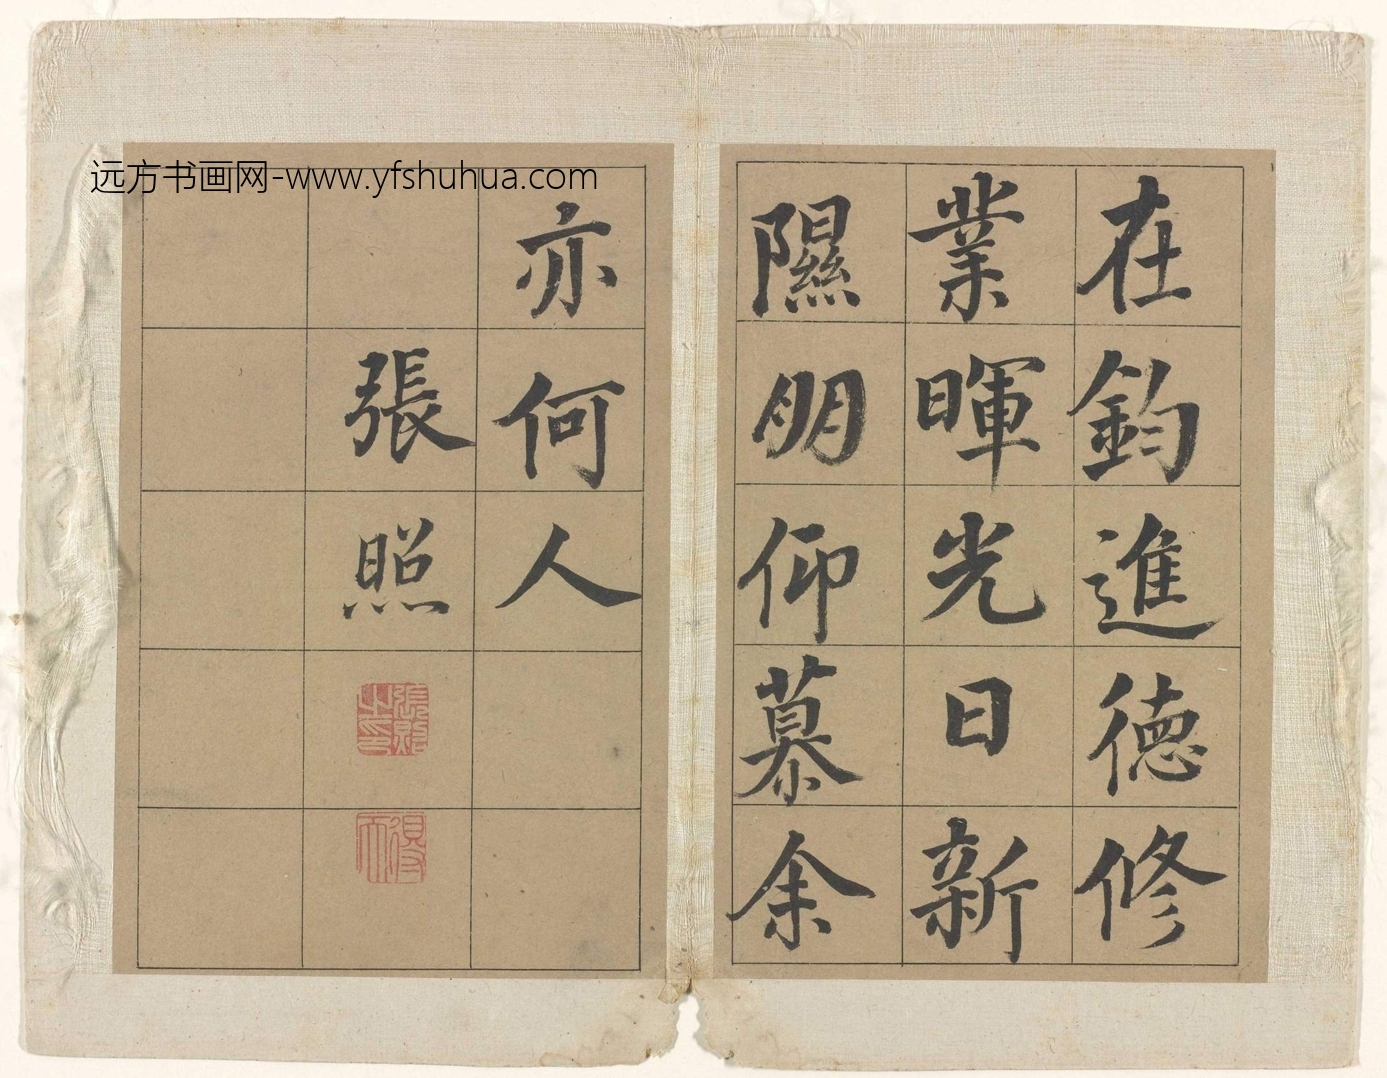 远方书画网-www.yfshuhua.com
在鈞進德修
業暉光日新
隰朙仰慕余
亦何人
張照